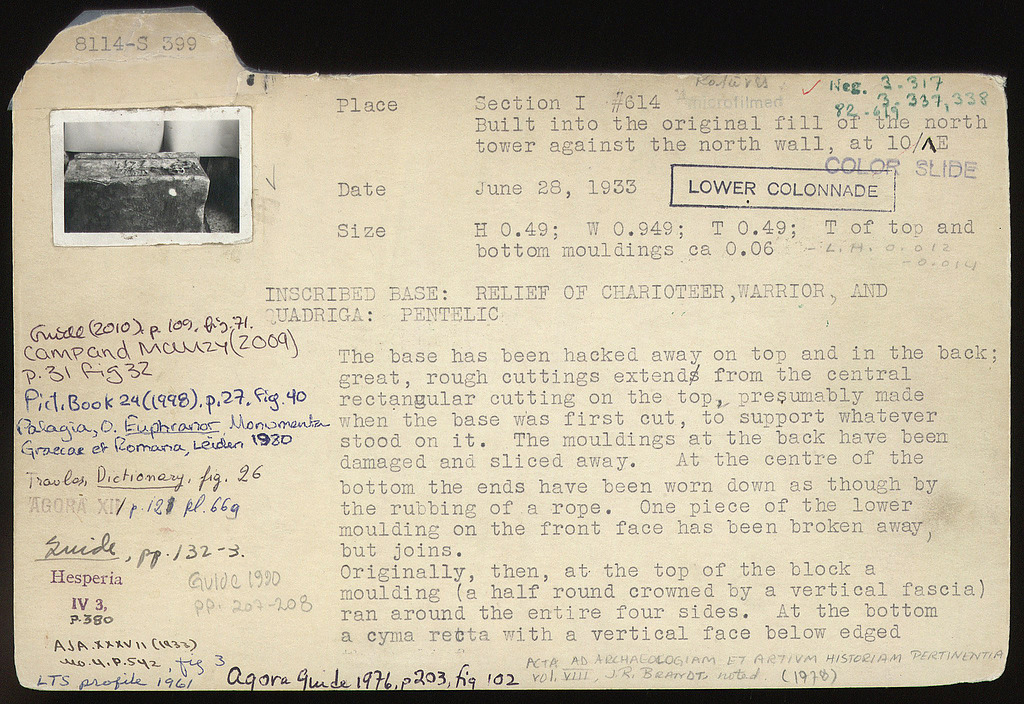 8114-S 399
Neg. 3-317
3-337,338
82-619
Place Section I #614 microfilmed
Built into the original fill of the north
tower against the north wall, at 10/ΛE
COLOR SLIDE
Date June 28, 1933
LOWER COLONNADE
Size H 0.49; W 0.949; T 0.49; T of top and
bottom mouldings ca 0.06 - L.H. 0.012
-0.014
INSCRIBED BASE: RELIEF OF CHARIOTEER, WARRIOR, AND
QUADRIGA: PENTELIC
The base has been hacked away on top and in the back;
great, rough cuttings extend from the central
rectangular cutting on the top, presumably made
when the base was first cut, to support whatever
stood on it. The mouldings at the back have been
damaged and sliced away. At the centre of the
bottom the ends have been worn down as though by
the rubbing of a rope. One piece of the lower
moulding on the front face has been broken away,
but joins.
Originally, then, at the top of the block a
moulding (a half round crowned by a vertical fascia)
ran around the entire four sides. At the bottom
a cyma recta with a vertical face below edged
Guide (2010). p. 109, fig. 71.
Camp and Mauzy (2009)
p. 31 fig 32
Pict. Book 24 (1998), p. 27, fig. 40
Palagia, O. Euphranor Monumenta
Graecae et Romana, Leiden 1980
Travlos, Dictionary, fig. 26
AGORA XIV p. 121 pl. 66g
Guide, pp. 132-3.
Hesperia
IV 3,
P. 380
Guide 1990
pp. 207-208
AJA. XXXVII (1933)
no. 4, P. 542 fig 3
LTS profile 1961
Agora Guide 1976, p 203, fig 102
ACTA AD ARCHAEOLOGIAM ET ARTIVM HISTORIAM PERTINENTIA
vol. VIII, J.R. BRANDT, noted. (1978)